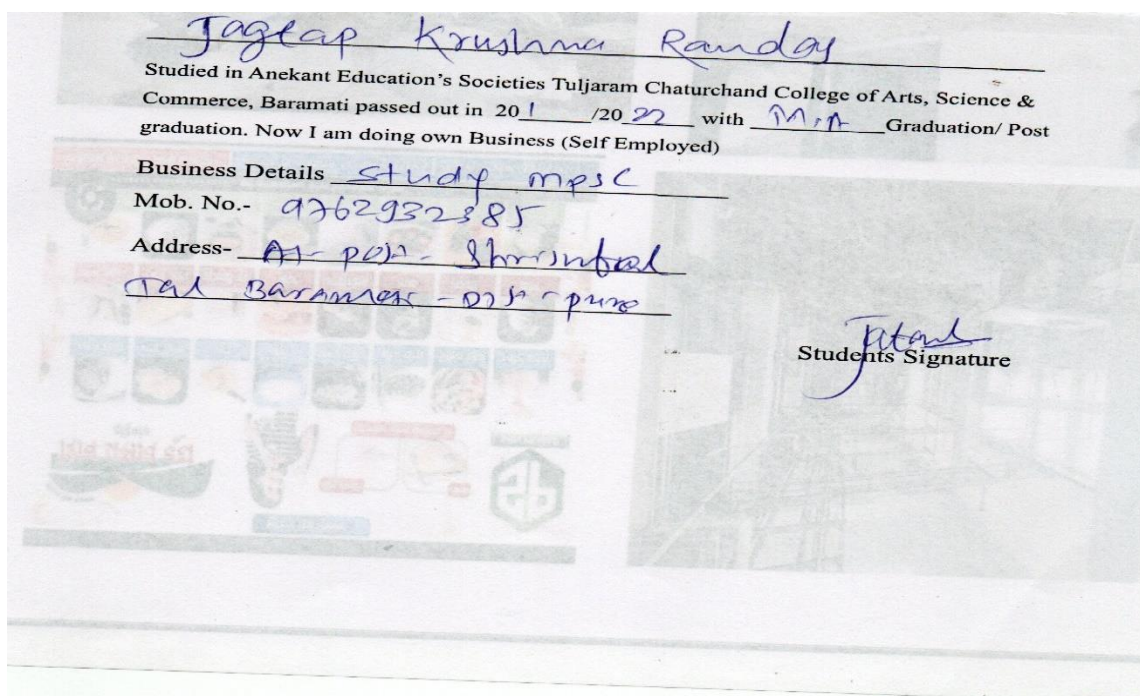 Jagtap Krushna Ramdas
Studied in Anekant Education's Societies Tuljaram Chaturchand College of Arts, Science &
Commerce, Baramati passed out in 201 /2022 with M.A Graduation/ Post
graduation. Now I am doing own Business (Self Employed)
Business Details study mpsc
Mob. No.- 9762932385
Address- At- post-
Tal Baramati - Dist - pune
Students Signature